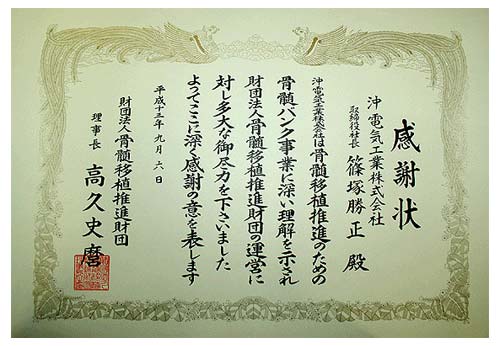 感謝状
沖電気工業株式会社
取締役社長 篠塚勝正殿
沖電気工業株式会社は骨髄移植推進のための
骨髄バンク事業に深い理解を示され
財団法人骨髄移植推進財団の運営に
対し多大な御尽力を下さいました
よってここに深く感謝の意を表します
平成十三年九月六日
財団法人骨髄移植推進財団
理事長 高久史麿